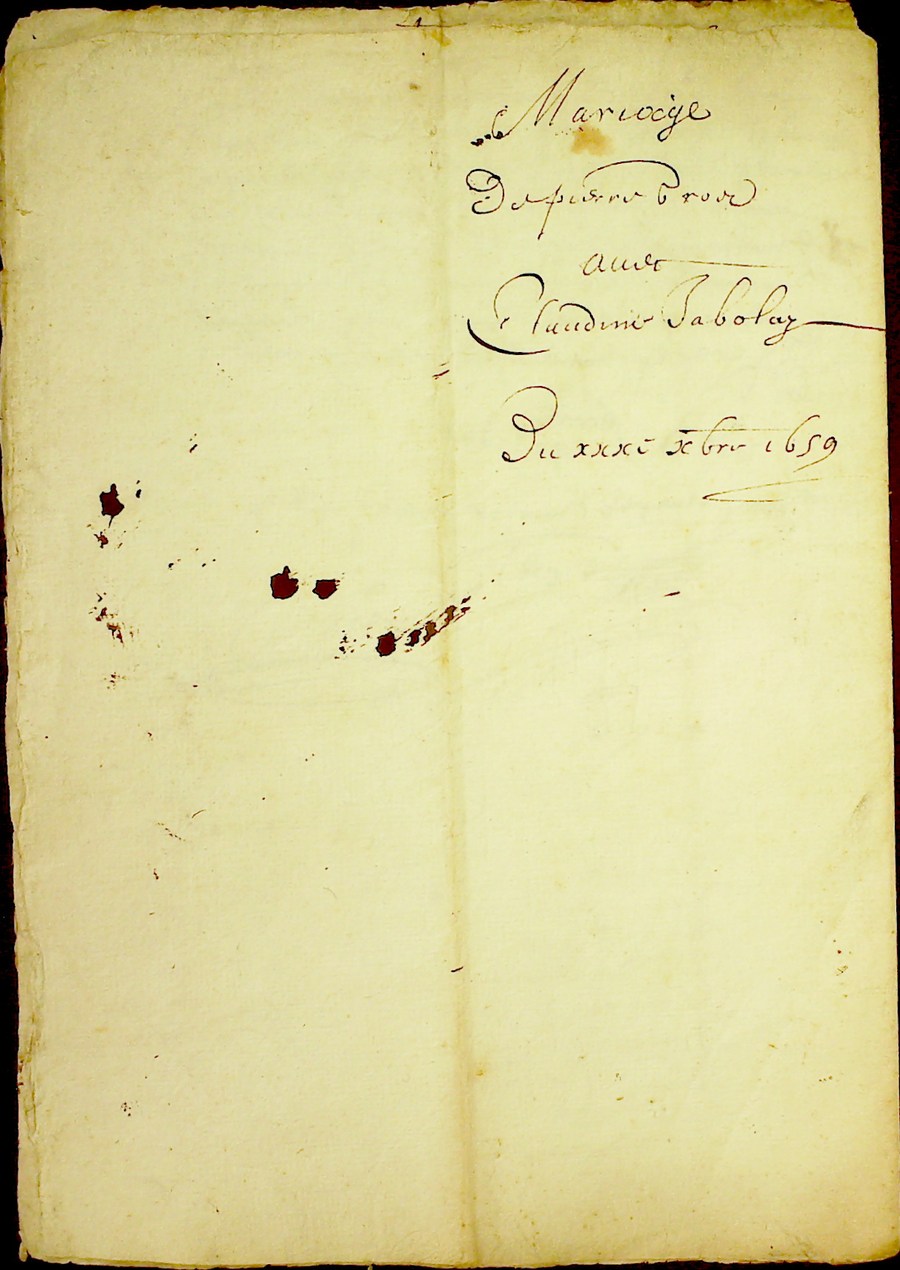 Mariage
De pierre Broet
auec
Claudine Jabolay
Du xxxe xbre 1659